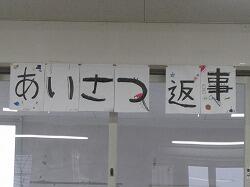 あいさつ 返事